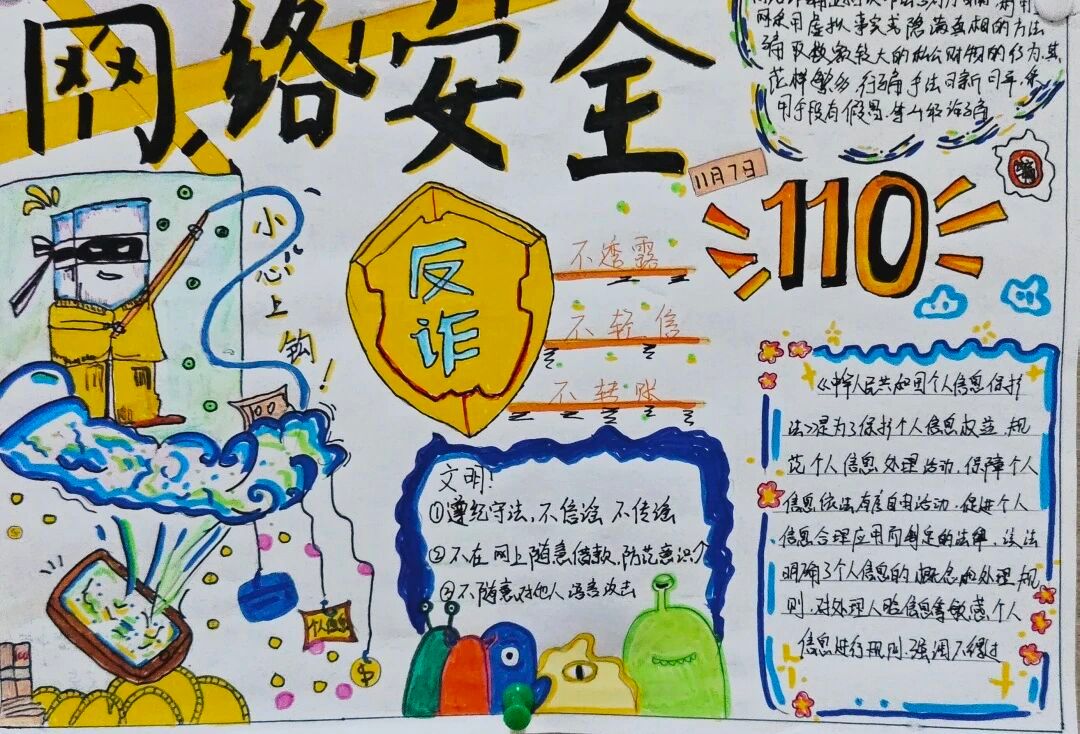 网络安全
网采用虚拟事实或隐瞒真相的方法
骗取数额较大的私公财物的行为.其
花样繁多,行骗手法日新月异,
用手段有假恩
11月7日
110
小心上钩!
反诈
不透露
不轻信
不转账
100
个人信息
$
文明!
①遵纪守法,不信谣 不传谣
②不在网上随意借款,防范意识个
③不随意对他人语言攻击
《中华人民共和国个人信息保护
法》是为了保护个人信息权益,规
范个人信息处理活动,保障个人
信息依法有序自由活动,促进个人
信息合理应用而制定的法律,该法
明确了个人信息的概念和处理规
则,对处理人脸信息等敏感个人
信息进行规则,强调不得过